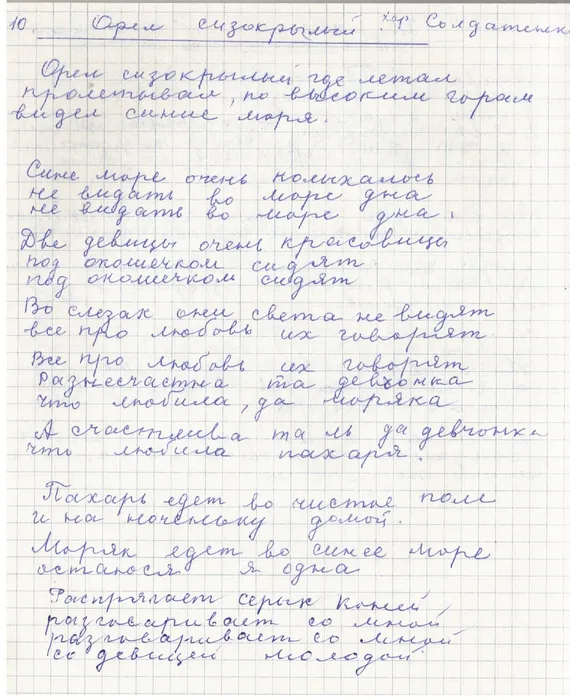 10. Орел сизокрылый. хор Солдатенки
Орел сизокрылый где летал
пролетывал, по высоким горам
видел синие моря.
Сине море очень колыхалось
не видать во море дна
не видать во море дна.
Две девицы очень красовицы
под окошечком сидят
под окошечком сидят
Во слезах они света не видят
все про любовь их говорят.
Все про любовь их говорят
Разнесчастна та девчонка
что любила, да моряка
А счастлива та ль да девчонка
что любила пахаря.
Пахарь едет во чистое поле
и на ноченьку домой.
Моряк едет во синее море
останося я одна
Распрягает серых коней
разговаривает со мной
разговаривает со мной
со девицей молодой.